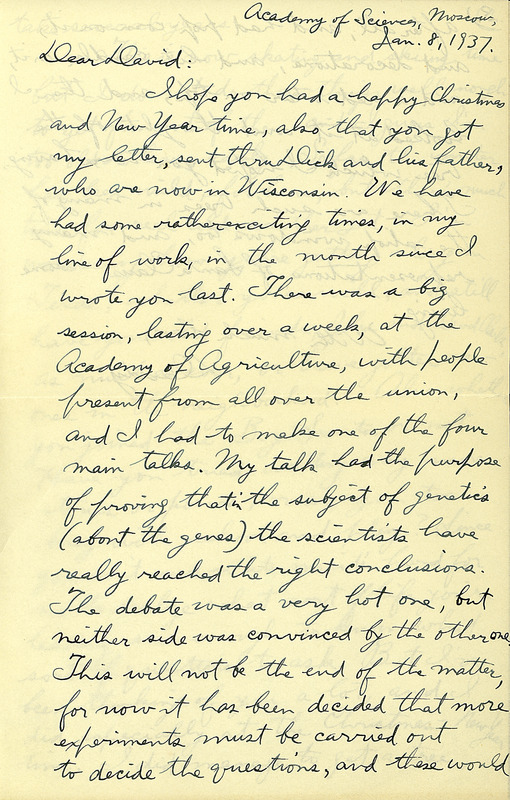 Academy of Sciences, Moscow,
Jan. 8, 1937.
Dear David:
I hope you had a happy Christmas
and New Year time, also that you got
my letter, sent thru Dick and his father,
who are now in Wisconsin. We have
had some rather exciting times, in my
line of work, in the month since I
wrote you last. There was a big
session, lasting over a week, at the
Academy of Agriculture, with people
present from all over the union,
and I had to make one of the four
main talks. My talk had the purpose
of proving that in the subject of genetics
(about the genes) the scientists have
really reached the right conclusions.
The debate was a very hot one, but
neither side was convinced by the other one.
This will not be the end of the matter,
for now it has been decided that more
experiments must be carried out
to decide the questions, and these would